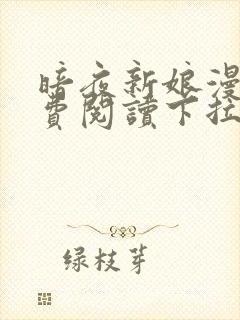 暗夜新娘漫
費閱讀下拉
绿枝芽